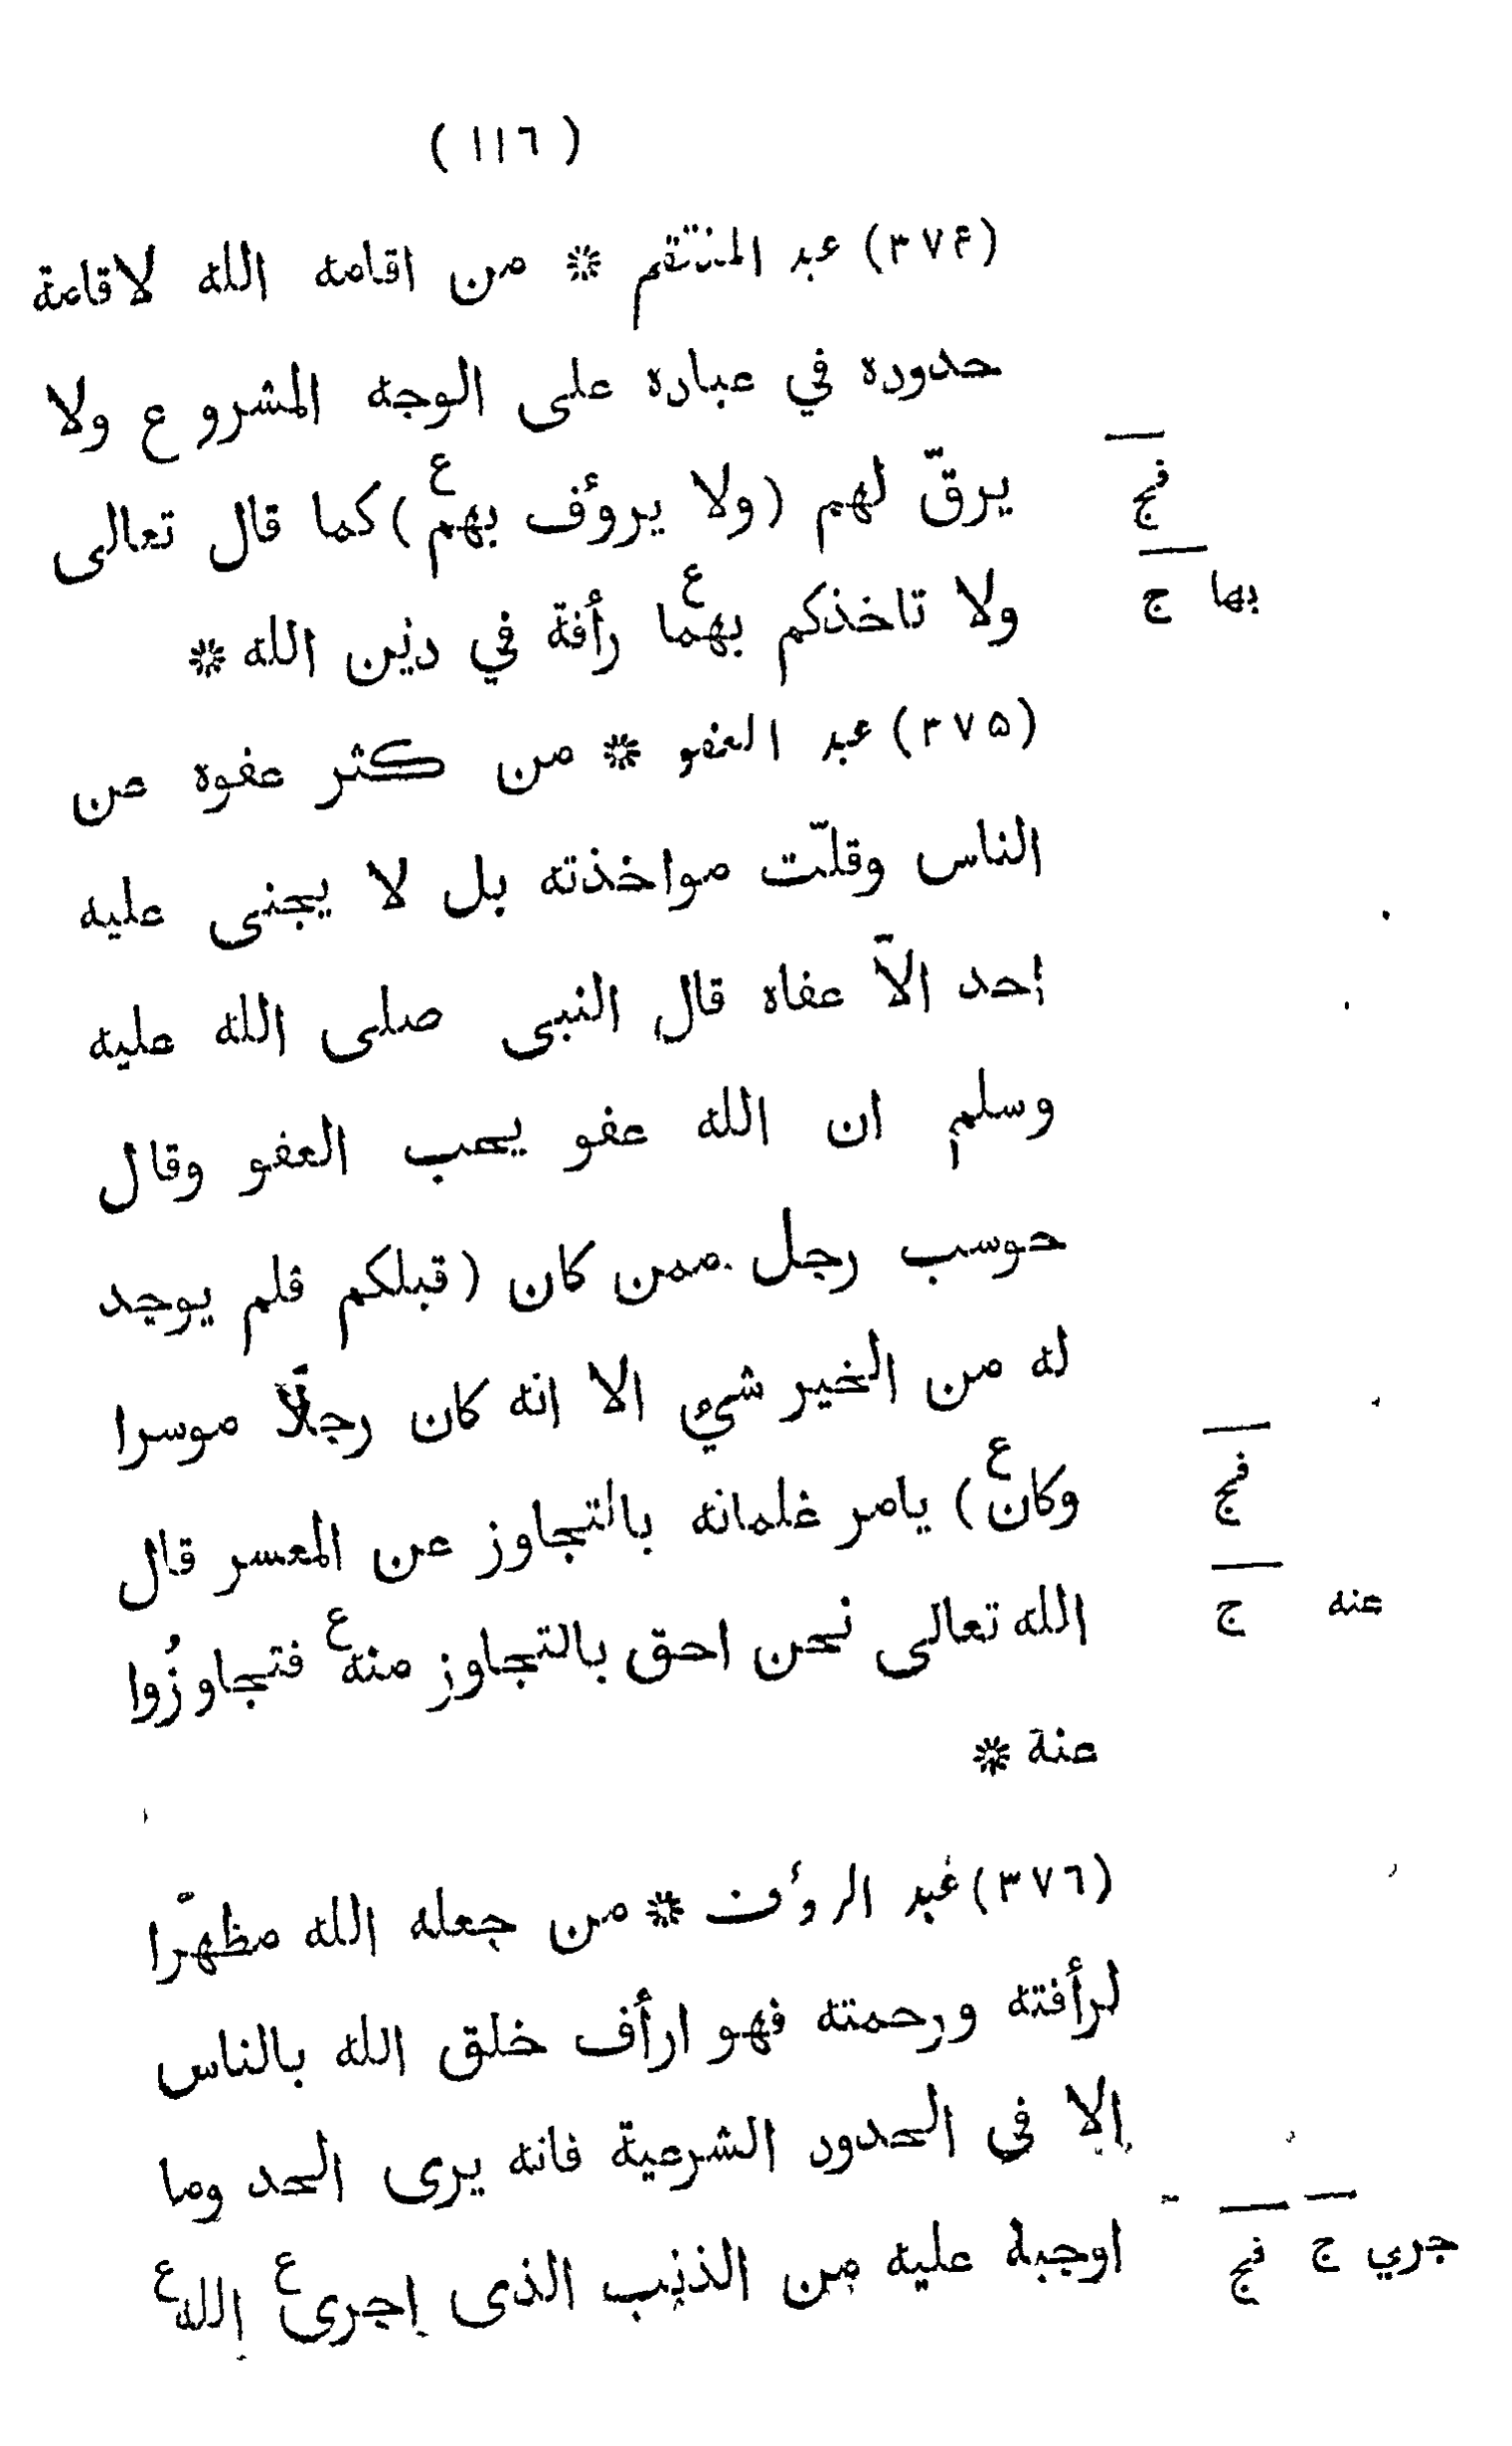 ( ١١٦ )
(٣٧۴) عبد المنتقم * من اقامه الله لاقامة
حدوده في عباده على الوجه المشروع ولا
يرقّ لهم (ولا يروٴف بهم ع) كما قال تعالى
فج
ولا تاخذكم بهما ع رأفة في دين الله *
بها ج
(٣٧۵) عبد العفو * من كثر عفوه عن
الناس وقلّت مواخذته بل لا يجنى عليه
احد الاّ عفاه قال النبى صلى الله عليه
وسلم ان الله عفو يحب العفو وقال
حوسب رجل ممن كان (قبلكم فلم يوجد
له من الخير شيء الا انه كان رجلًا موسرا
وكان ع) يامر غلمانه بالتجاوز عن المعسر قال
فج
الله تعالى نحن احق بالتجاوز منه ع فتجاوزُوا
عنه ج
عنة *
(٣٧٦) عبد الروٴف * من جعله الله مظهرًا
لرأفته ورحمته فهو ارأف خلق الله بالناس
الا في الحدود الشرعية فانه يرى الحد وما
اوجبه عليه من الذنب الذى اجرى ع الله ع
جري ج فج